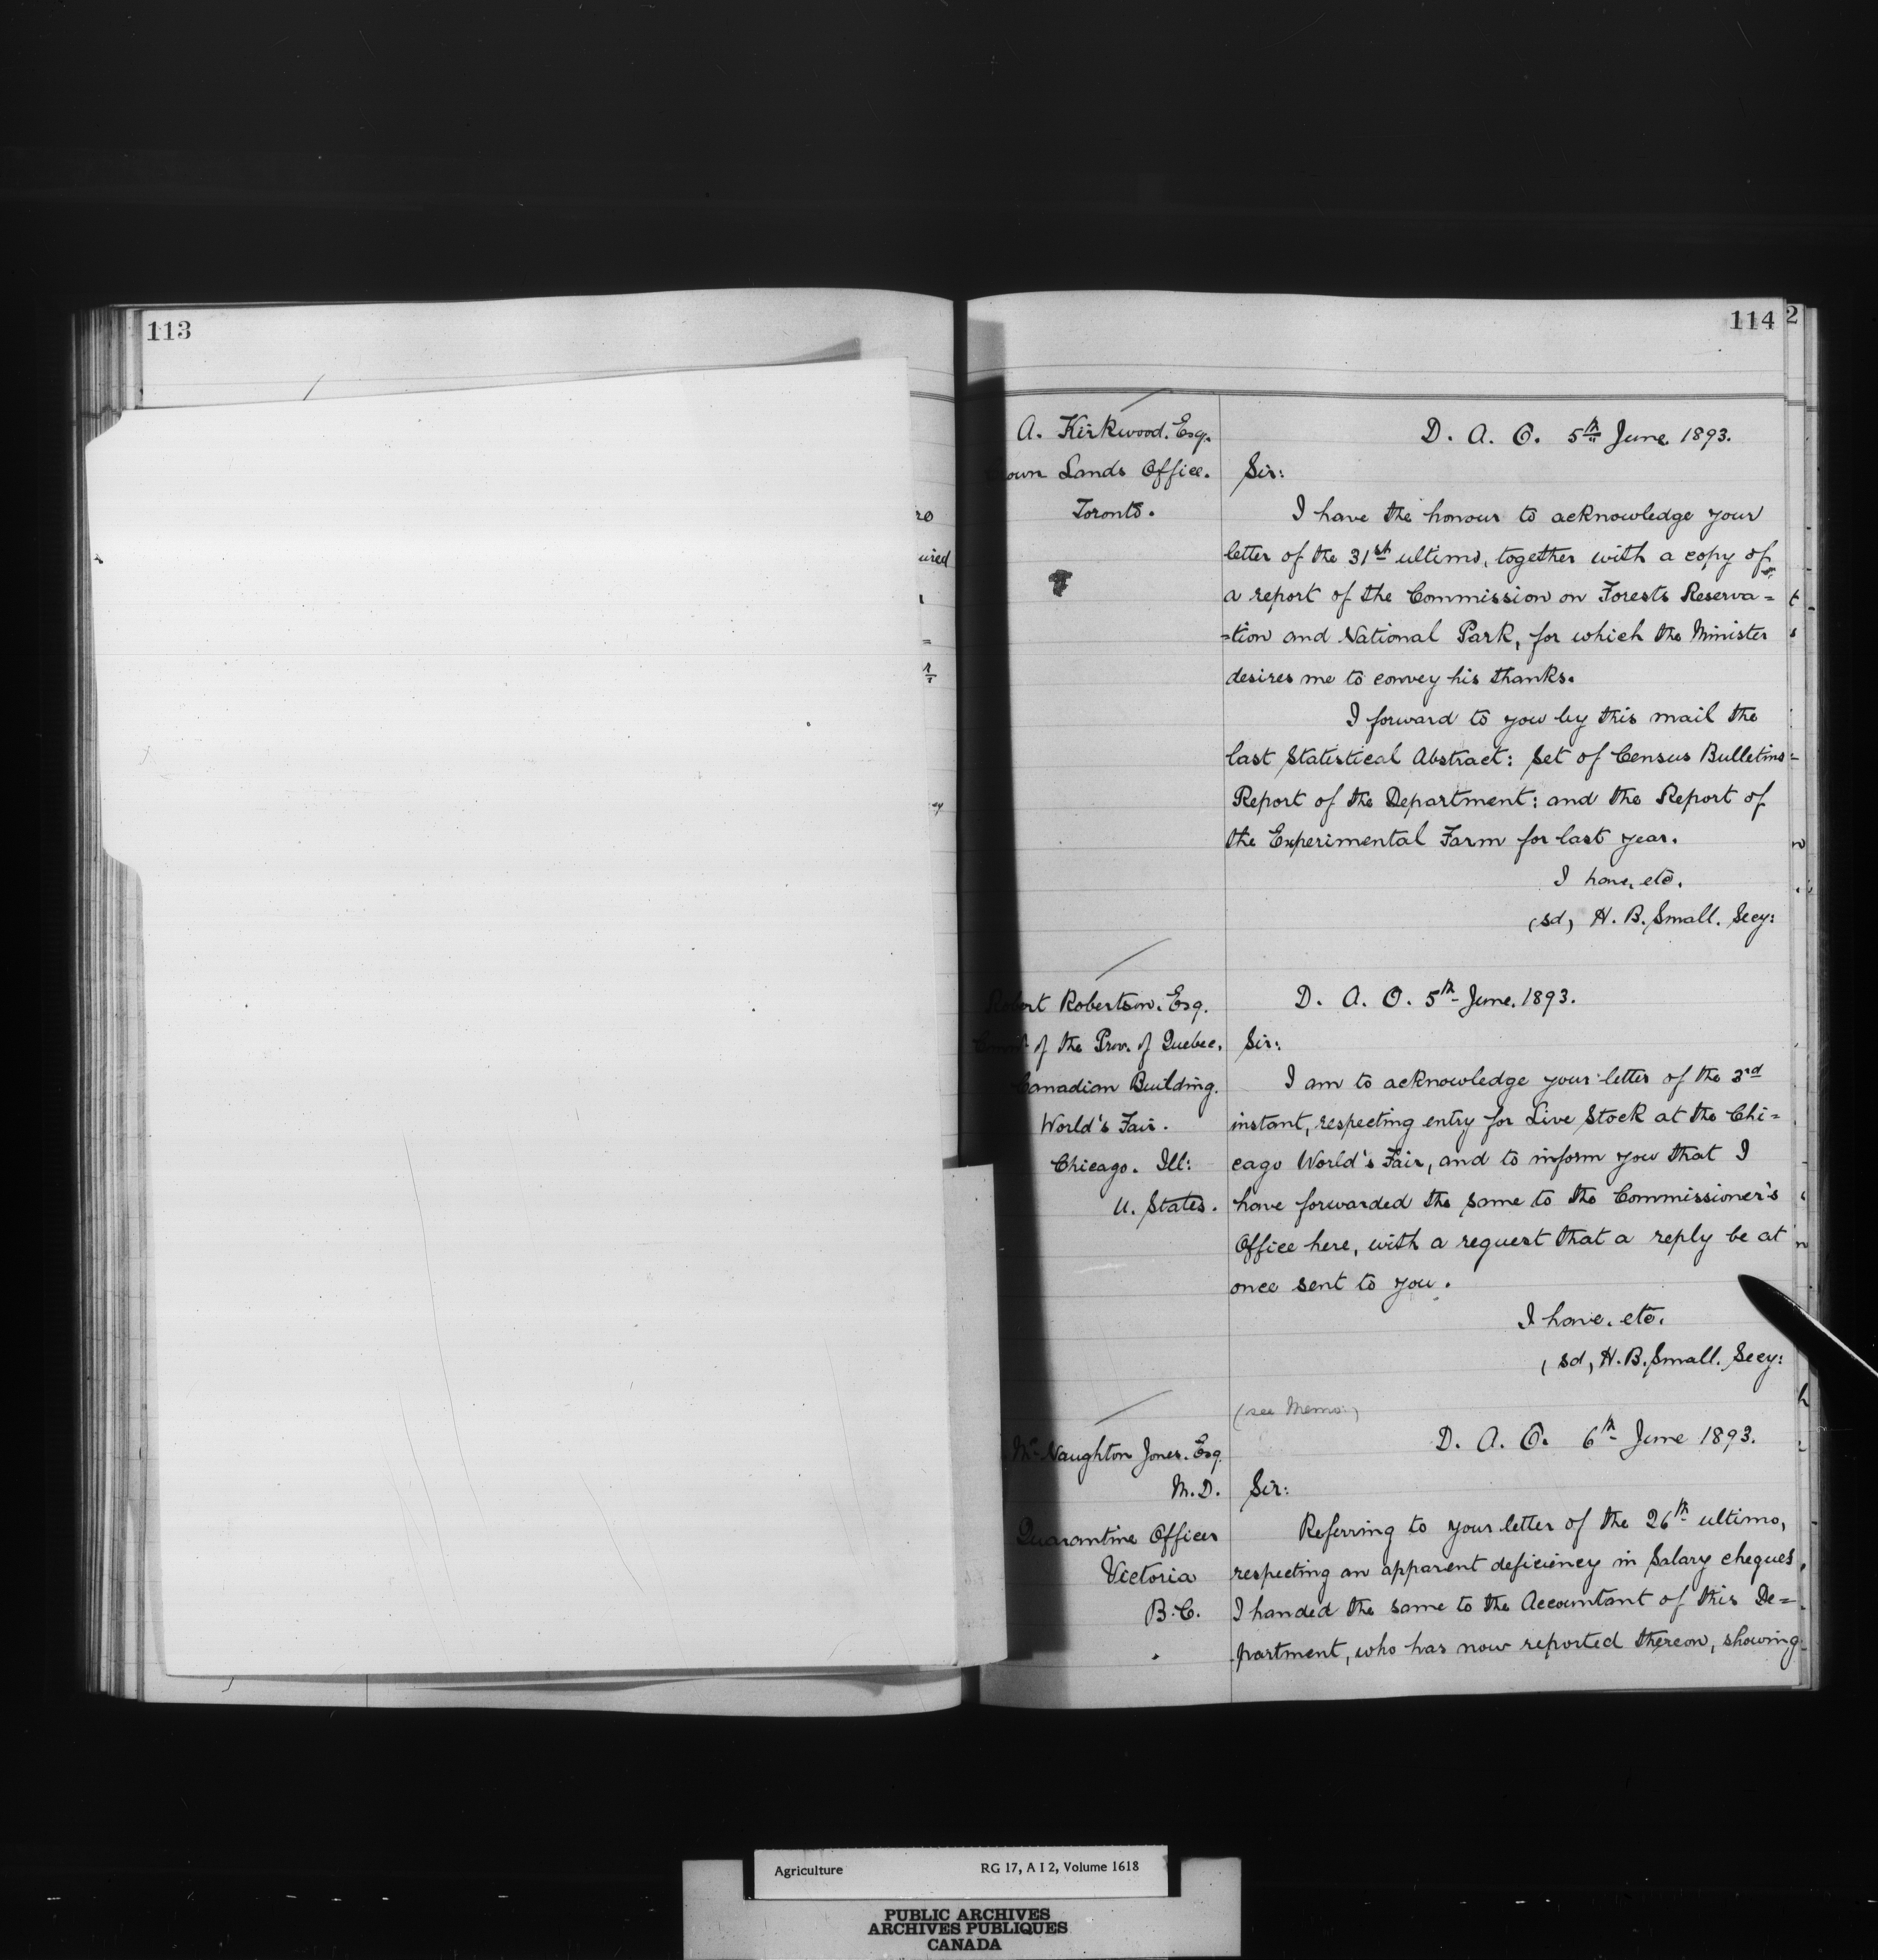 113
114
2
A. Kirkwood. Esq.
Lands Office.
Toronto.
D. A. O. 5th June 1893.
Sir:
I have the honour to acknowledge your
letter of the 31st ultimo, together with a copy of
a report of the Commission on Forests Reserva=
=tion and National Park, for which the Minister
desires me to convey his thanks.
I forward to you by this mail the
last Statistical Abstract: Set of Census Bulletins
Report of the Department: and the Report of
the Experimental Farm for last year.
I have, etc.
(sd) H. B. Small. Secy:
Robert Robertson. Esq.
of the Prov. of Quebec.
Canadian Building.
World's Fair.
Chicago. Ill:
U. States.
D. A. O. 5th June. 1893.
Sir:
I am to acknowledge your letter of the 3rd
instant, respecting entry for Live Stock at the Chi=
cago World's Fair, and to inform you that I
have forwarded the same to the Commissioner's
Office here, with a request that a reply be at
once sent to you.
I have. etc.
(sd) H. B. Small. Secy:
(see Memo:)
Mc Naughton Jones. Esq.
M. D.
Quarantine Officer
Victoria
B. C.
D. A. O. 6th June 1893.
Sir:
Referring to your letter of the 26th ultimo,
respecting an apparent deficiency in Salary cheques,
I handed the same to the Accountant of this De=
partment, who has now reported thereon, showing
Agriculture RG 17, A I 2, Volume 1618
PUBLIC ARCHIVES
ARCHIVES PUBLIQUES
CANADA